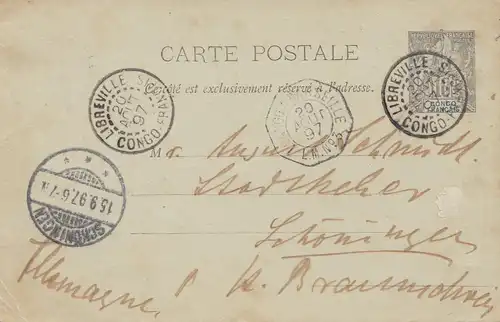 REPUBLIQUE FRANCAISE
CARTE POSTALE
Ce côté est exclusivement réservé à l'adresse.
LIBREVILLE
20 AOUT 97
CONGO-FRANÇAIS
20 AOUT 97
L.M. Nº
LIBREVILLE
10
CONGO FRANÇAIS
CONGO-F
SCHÖNINGEN
15.9.97.6-7
M r. August Schmidt.
Schöningen
Allemagne. H. Braunschweig